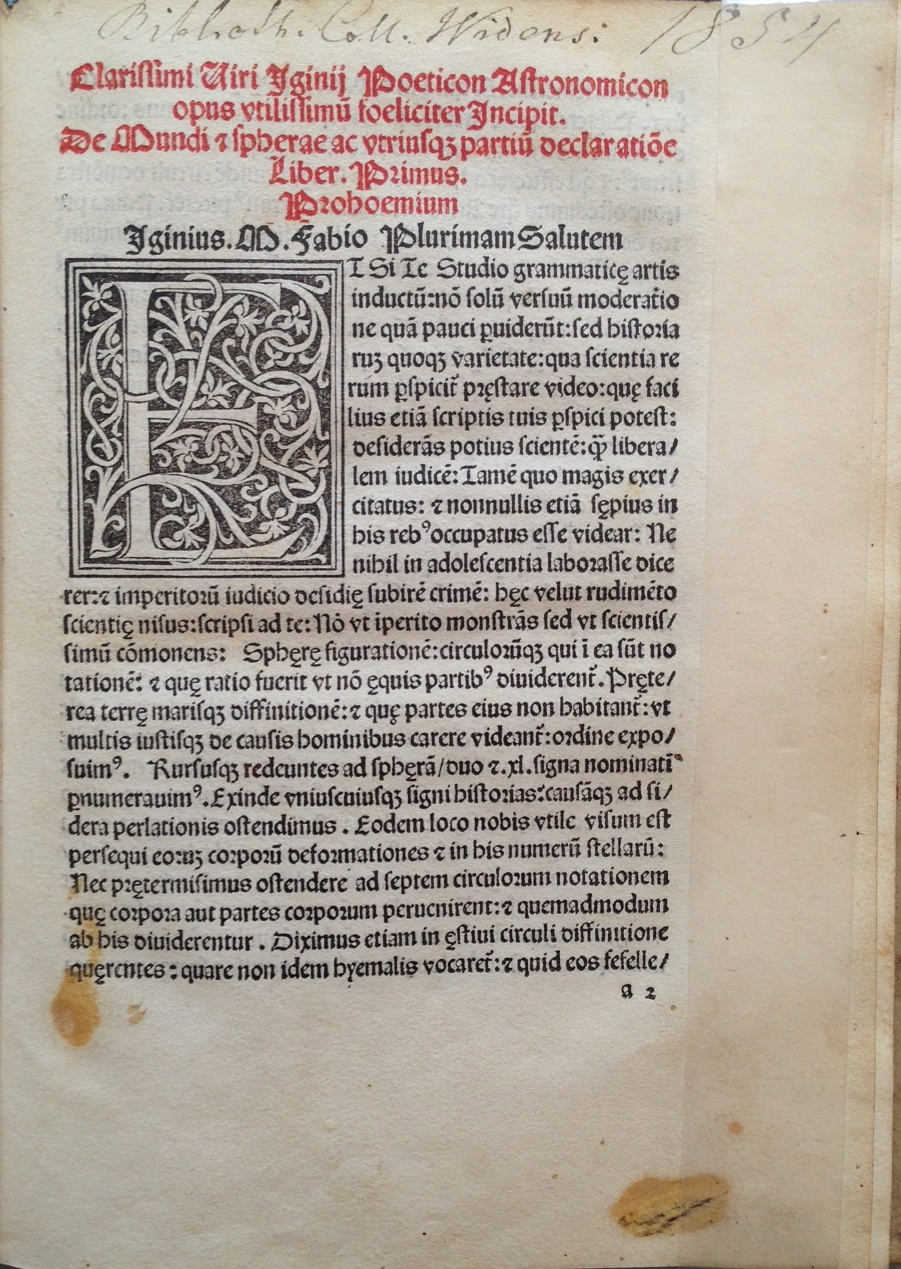 Biblioth. Coll. Widens: 1854
Clarissimi Uiri Iginij Poeticon Astronomicon
opus vtilissimū foeliciter Incipit.
De Mundi ⁊ spherae ac vtriusqꝫ partiū declaratiōe
Liber. Primus.
Prohoemium
Iginius. M. Fabio Plurimam Salutem
ET Si Te Studio grammaticę artis
inductū: nō solū versuū moderatio
ne quā pauci ꝑuiderūt: sed historia
ruꝫ quoqꝫ varietate: qua scientia re
rum ꝑspicit̃ pręstare video: quę faci
lius etiā scriptis tuis ꝑspici potest:
desiderās potius scientē: q̄ꝫ libera/
lem iudicē: Tamē quo magis exer/
citatus: ⁊ nonnullis etiā sępius in
his rebꝰ occupatus esse videar: Ne
nihil in adolescentia laborasse dice
rer: ⁊ imperitorū iudicio desidię subirē crimē: hęc velut rudimēto
scientię nisus: scripsi ad te: Nō vt īperito monstrās sed vt scientis/
simū cōmonens: Sphęrę figurationē: circulorūqꝫ qui ī ea sūt no
tationē: ⁊ quę ratio fuerit vt nō ęquis partibꝰ diuiderent̃. Pręte/
rea terrę marisqꝫ diffinitionē: ⁊ quę partes eius non habitant̃: vt
multis iustisqꝫ de causis hominibus carere videant̃: ordine expo/
suimꝰ. Rursusqꝫ redeuntes ad sphęrā/duo ⁊.xl.signa nominati᷈
ꝑnumerauimꝰ. Exinde vniuscuiusqꝫ signi historias: causāqꝫ ad si/
dera perlationis ostendimus. Eodem loco nobis vtile visum est
persequi eoruꝫ corporū deformationes ⁊ in his numerū stellarū:
Nec prętermisimus ostendere ad septem circulorum notationem
quę corpora aut partes corporum peruenirent: ⁊ quemadmodum
ab his diuiderentur. Diximus etiam in ęstiui circuli diffinitione
quęrentes: quare non idem hyemalis vocaret̃: ⁊ quid eos fefelle/
a 2